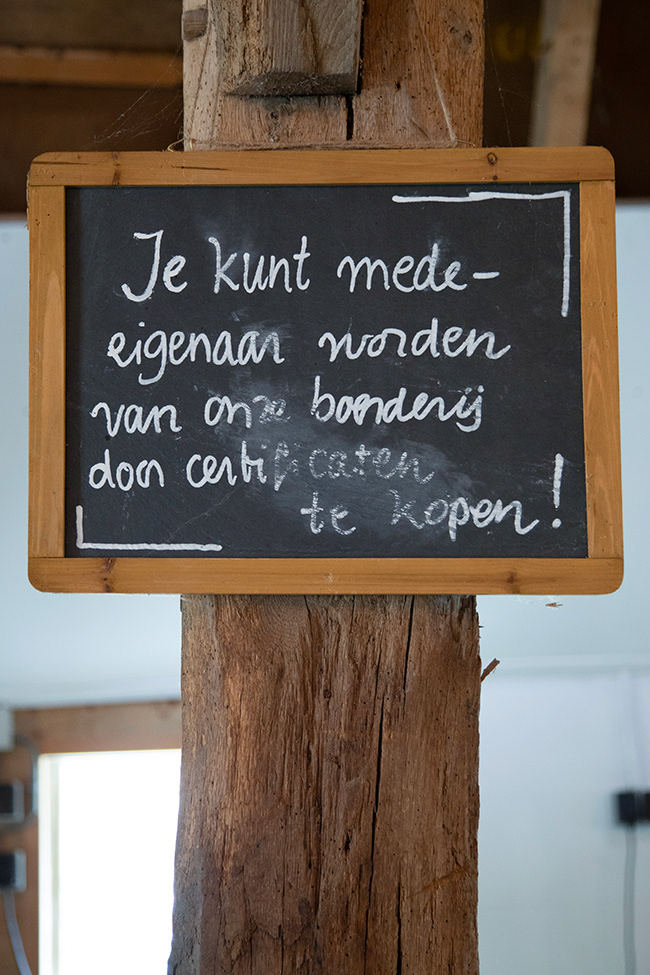 Je kunt mede-
eigenaar worden
van onze boerderij
door certificaten
te kopen!